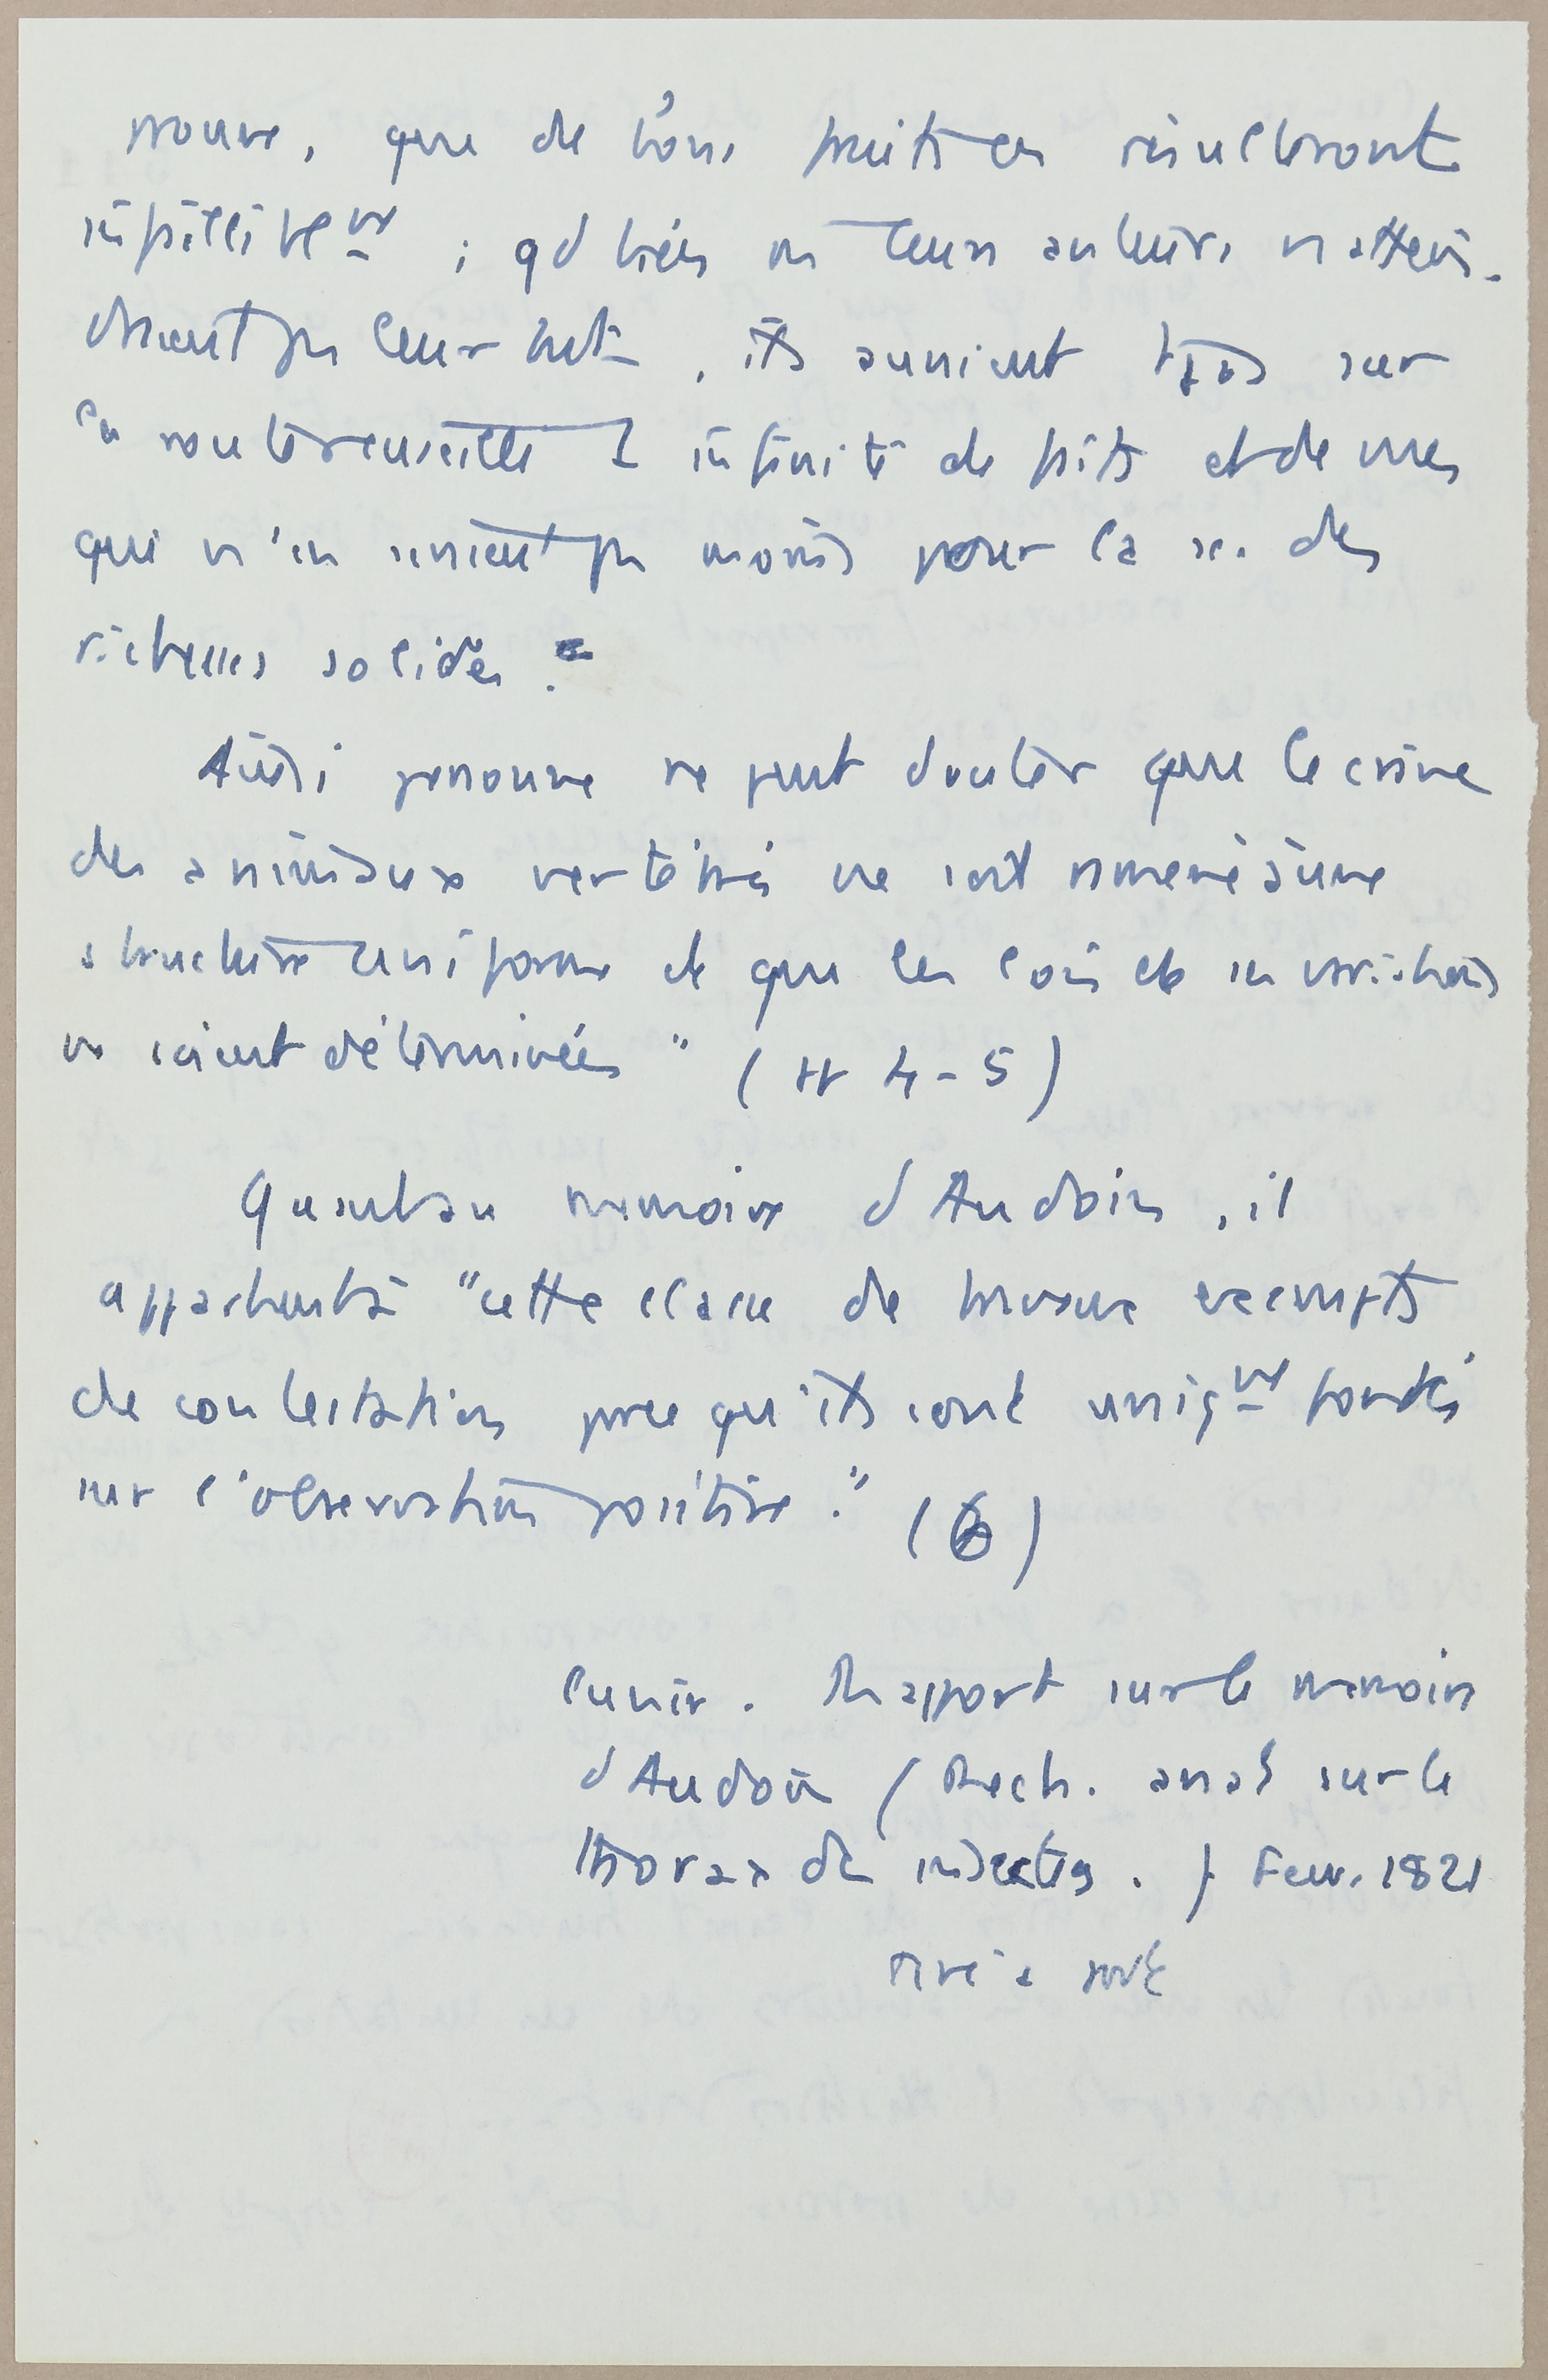 trouve, que de bons fruits en résulteront
infailliblnt ; qd bien m leurs auteurs n'attein-
draient pas leur but, ils auraient tjrs sur
la route recueilli 1 infinité de faits et de vues
qui n'en seraient pas moins pour la sc. des
richesses solides.
Aussi personne ne peut douter que le crâne
des animaux vertébrés ne soit ramené à une
structure uniforme et que les lois de ses variations
ne soient déterminées" (pp 4-5)
Quant au mémoire d'Audoin, il
appartient à "cette classe de travaux exempts
de contestation parce qu'ils sont uniqnt fondés
sur l'observation positive." (6)
Cuvier. Rapport sur le mémoire
d'Audoin (Rech. anat sur le
thorax des insectes.) Fev. 1821
Tiré à part